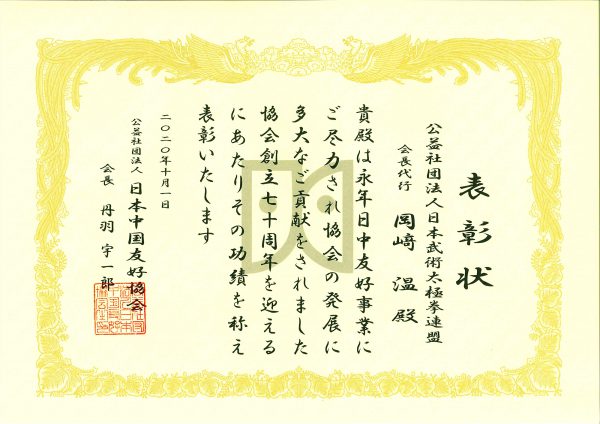 表彰状
公益社団法人日本武術太極拳連盟
会長代行
岡﨑 温 殿
貴殿は永年日中友好事業に
ご尽力され協会の発展に
多大なご貢献をされました
協会創立七十周年を迎える
にあたりその功績を称え
表彰いたします
二〇二〇年十月一日
公益社団法人 日本中国友好協会
会長 丹羽 宇一郎